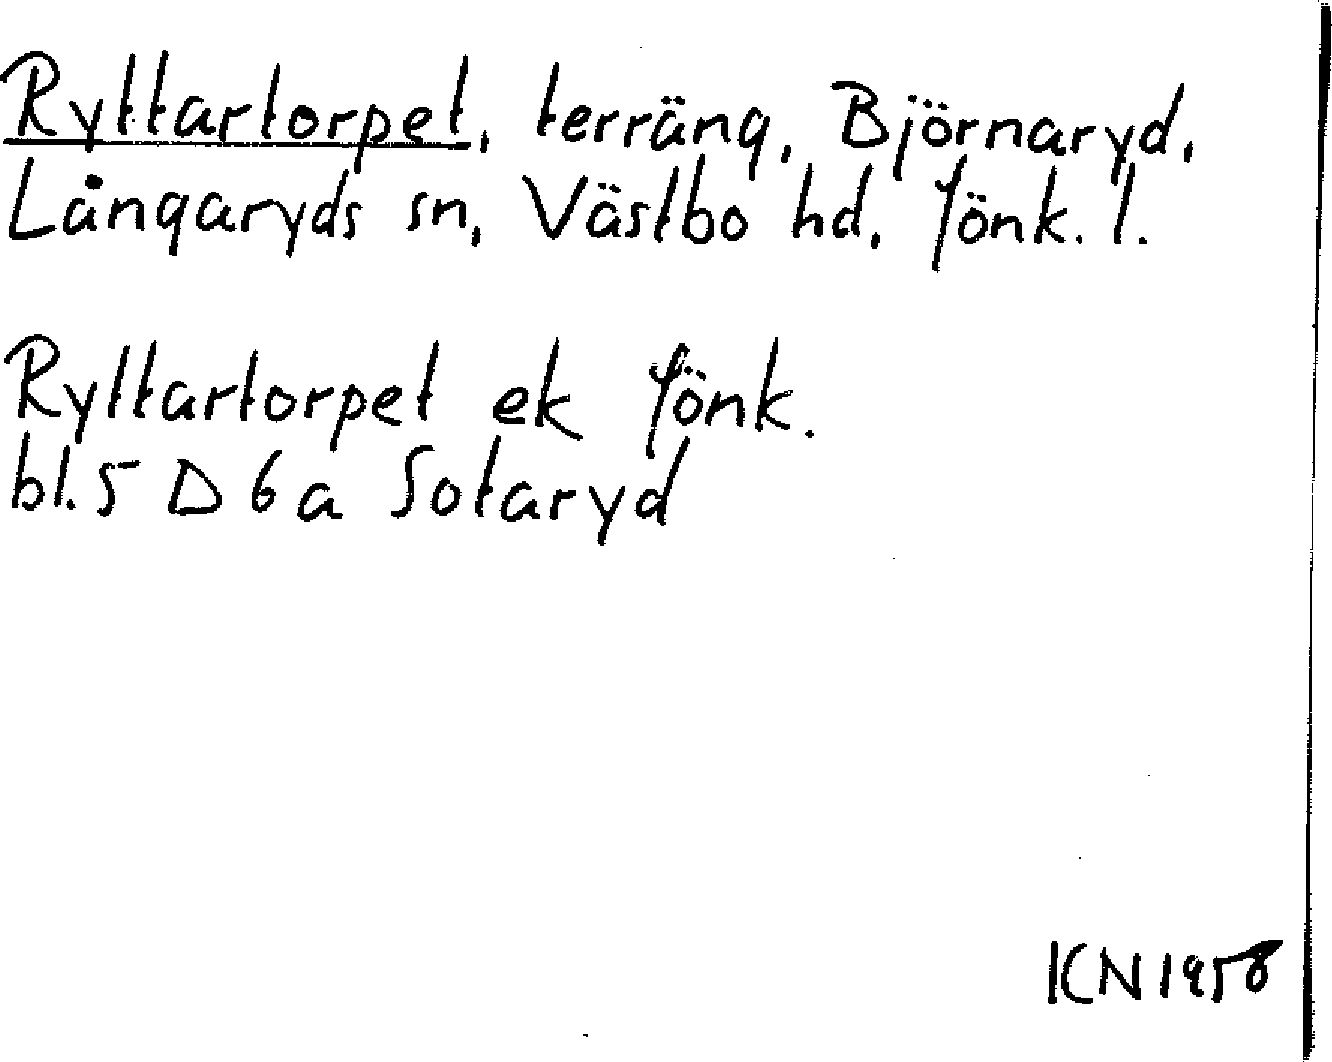 Ryttartorpet, terräng, Björnaryd,
Långaryds sn, Västbo hd, Jönk. l.
Ryttartorpet ek Jönk.
bl. 5 D 6a Sotaryd
KN 1958